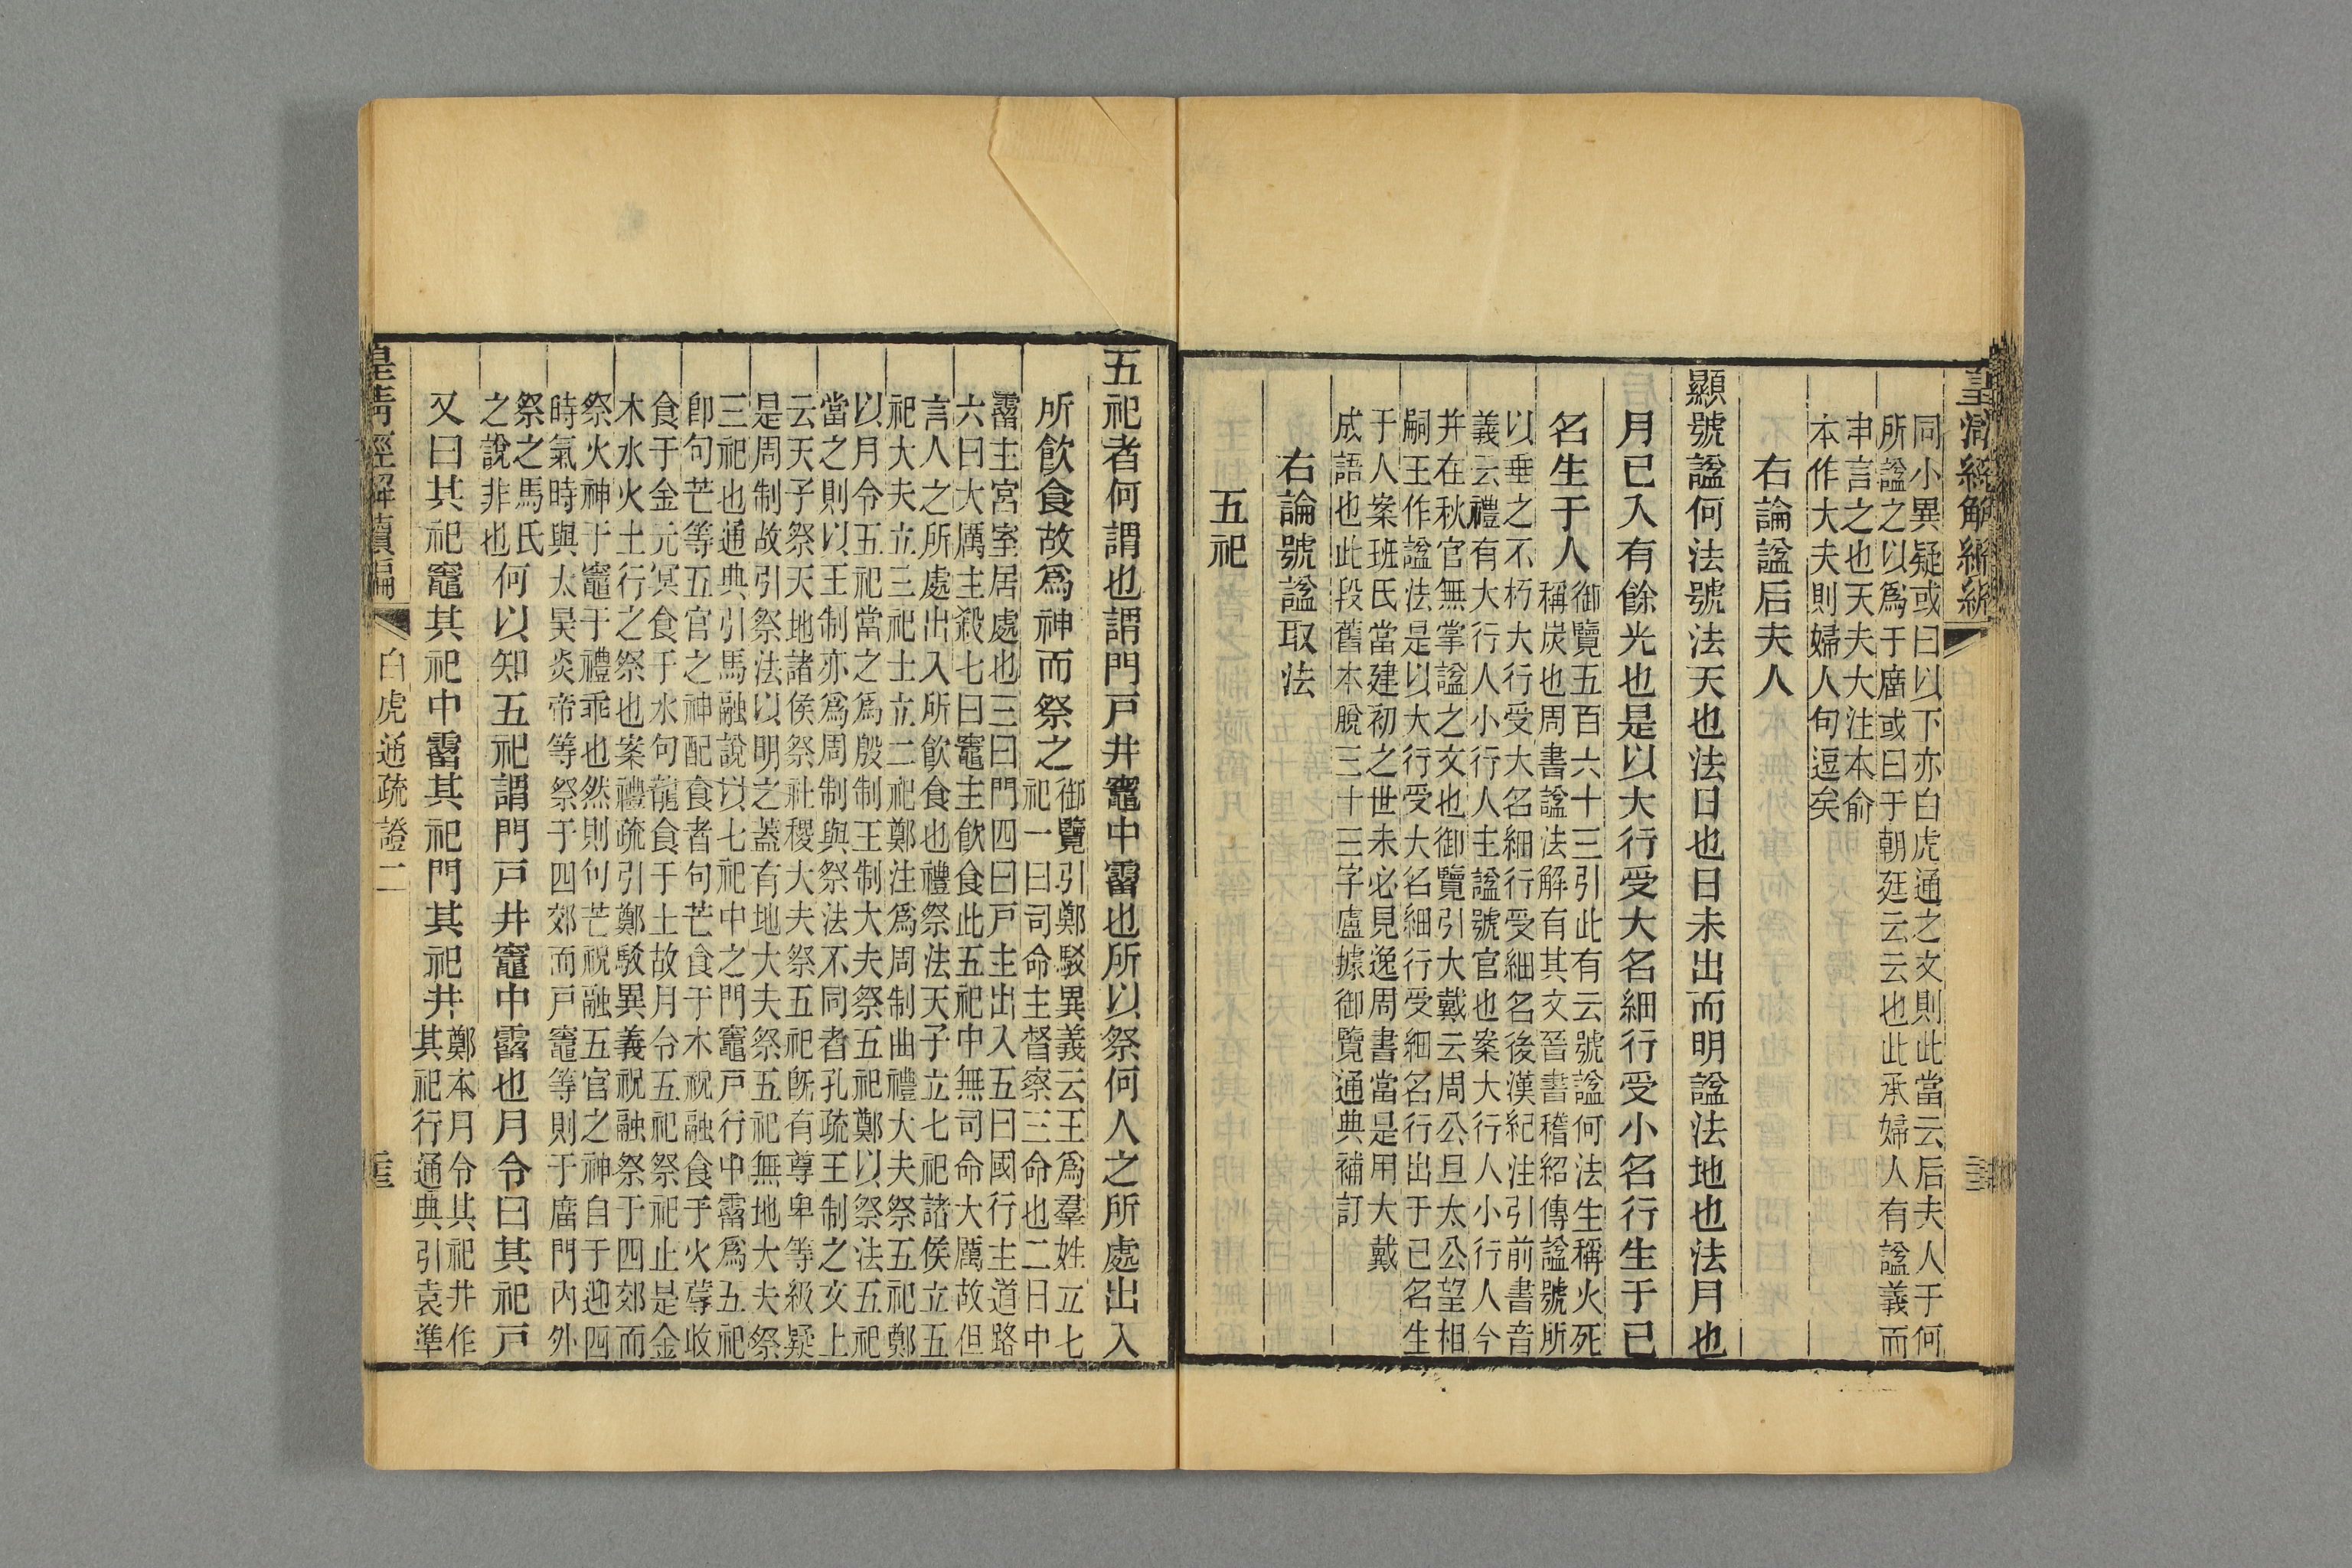 皇清經解續編
同小異疑或曰以下亦白虎通之文則此當云后夫人于何
所諡之以爲于廣或曰于朝廷云云也此承婦人有諡義而
申言之也天夫大注本俞
本作大夫則婦人句逗矣
右論諡后夫人
顯號諡何法號法天也法日也日未出而明諡法地也法月也
月已入有餘光也是以大行受大名細行受小名行生于已
名生于人
御覽五百六十三引此有云號諡何法生稱火死
稱炭也周書諡法解有其文晉書稽紹傳諡號所
以垂之不朽大行受大名細行受細名後漢紀注引前書音
義云禮有大行人小行人主諡號官也案大行人小行人今
并在秋官無掌諡之文也御覽引大戴云周公旦太公望相
嗣王作諡法是以大行受大名細行受細名行出于已名生
于人案班氏當建初之世未必見逸周書當是用大戴
成語也此段舊本脫三十三字盧據御覽通典補訂
右論號諡取法
五祀
五祀者何謂也謂門戸井竈中霤也所以祭何人之所處出入
所飲食故爲神而祭之
御覽引鄭駁異義云王爲羣姓立七
祀一曰司命主督察三命也二曰中
霤主宮室居處也三曰門四曰戸主出入五曰國行主道路
六曰大厲主殺七曰竈主飲食此五祀中無司命大厲故但
言人之所處出入所飲食也禮祭法天子立七祀諸侯立五
祀大夫立三祀士立二祀鄭注爲周制曲禮大夫祭五祀鄭
以月令五祀當之爲殷制王制大夫祭五祀鄭以祭法五祀
當之則以王制亦爲周制與祭法不同者孔疏王制之文上
云天子祭天地諸侯祭社稷大夫祭五祀旣有尊卑等級疑
是周制故引祭法以明之蓋有地大夫祭五祀無地大夫祭
三祀也通典引馬融說以七祀中之門竈戸行中霤爲五祀
卽句芒等五官之神配食者句芒食于木祝融食于火蓐收
食于金元冥食于水句龍食于土故月令五祀祭祀止是金
木水火土行之祭也案禮疏引鄭駁異義祝融祭于四郊而
祭火神于竈于禮乖也然則句芒祝融五官之神自于迎四
時氣時與太昊炎帝等祭于四郊而戸竈等則于廣門內外
祭之馬氏
之說非也
何以知五祀謂門戸井竈中霤也月令曰其祀戸
又曰其祀竈其祀中霤其祀門其祀井
鄭本月令其祀井作
其祀行通典引袁準
皇清經解續編
白虎通疏證二